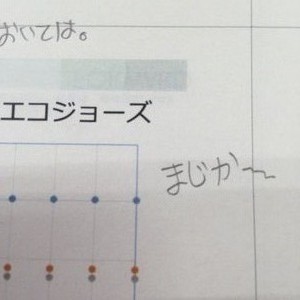 おいては。
エコジョーズ
まじか〜